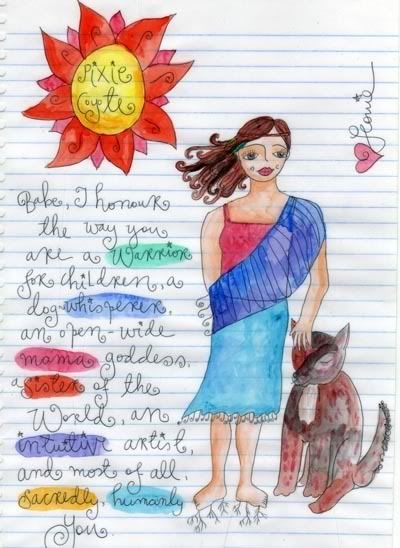 Pixie
Coyote
Leonie
Babe, I honour
the way you
are a Warrior
for children, a
dog-whisperer,
an open-wide
mama goddess,
a sister of the
World, an
intuitive artist,
and most of all,
sacredly, humanly
You.